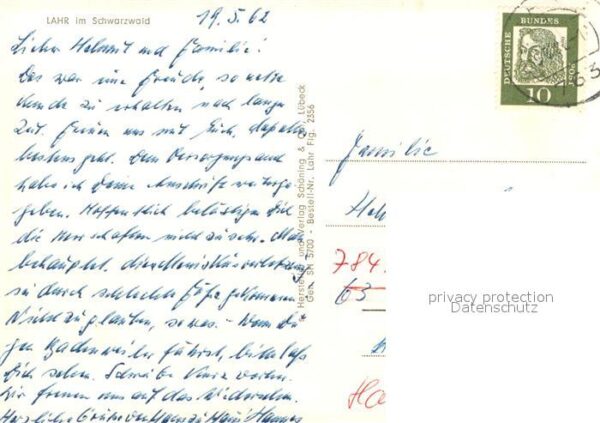 LAHR im Schwarzwald
19.5.62
Lieber Helmut und Familie!
Das war eine Freude, so nette
Kunde zu erhalten nach langer
Zeit. Freuen uns mit Euch, daß alles
bestens geht. Dem Versorgungsamt
habe ich Deine Anschrift weiterge-
geben. Hoffentlich belästigen Dich
die Herrschaften nicht zu sehr. Man
behauptet, die Meniskusverletzung
sei durch schlechte Füße gekommen
Nicht zu glauben, so was. - Wenn Du
gen Badenweiler fährst, bitte laß
Dich sehen. Schreibe kurz vorher.
Wir freuen uns auf das Wiedersehen.
Herzliche Grüße von Haus zu Haus Hannes
Herstellung und Verlag Schöning & Co., Lübeck
Ges. Sch 5700 - Bestell-Nr. Lahr Flg. 2356
DEUTSCHE BUNDESPOST
10
63
Familie
Hel
784.
63
Ha
privacy protection
Datenschutz